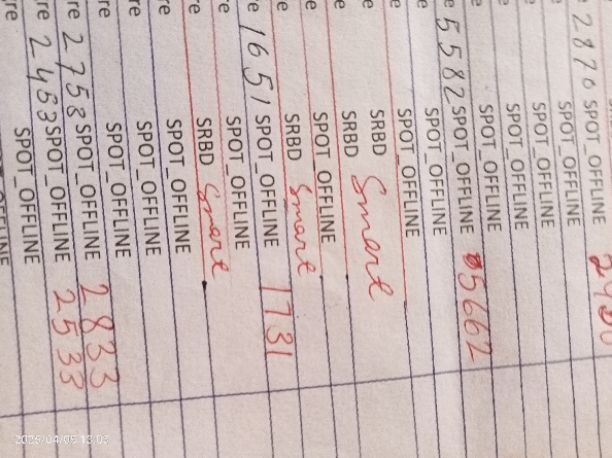 2870 SPOT_OFFLINE
SPOT_OFFLINE
SPOT_OFFLINE
SPOT_OFFLINE
SPOT_OFFLINE
5582 SPOT_OFFLINE 5662
SPOT_OFFLINE
SPOT_OFFLINE
SRBD Smart
SRBD
SPOT_OFFLINE
SRBD Smart
re 1651 SPOT_OFFLINE 1731
SPOT_OFFLINE
SRBD Smart
SPOT_OFFLINE
SPOT_OFFLINE
SPOT_OFFLINE
re 2753 SPOT_OFFLINE 2833
re 2453 SPOT_OFFLINE 2533
re SPOT_OFFLINE